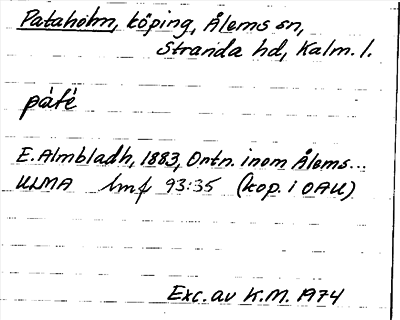 Pataholm, köping, Ålems sn,
Stranda hd, Kalm. l.
påtè
E. Almbladh, 1883, Ortn. inom Ålems...
ULMA hmf 93:35 (kop. i OAU)
Exc. av K.M. 1974